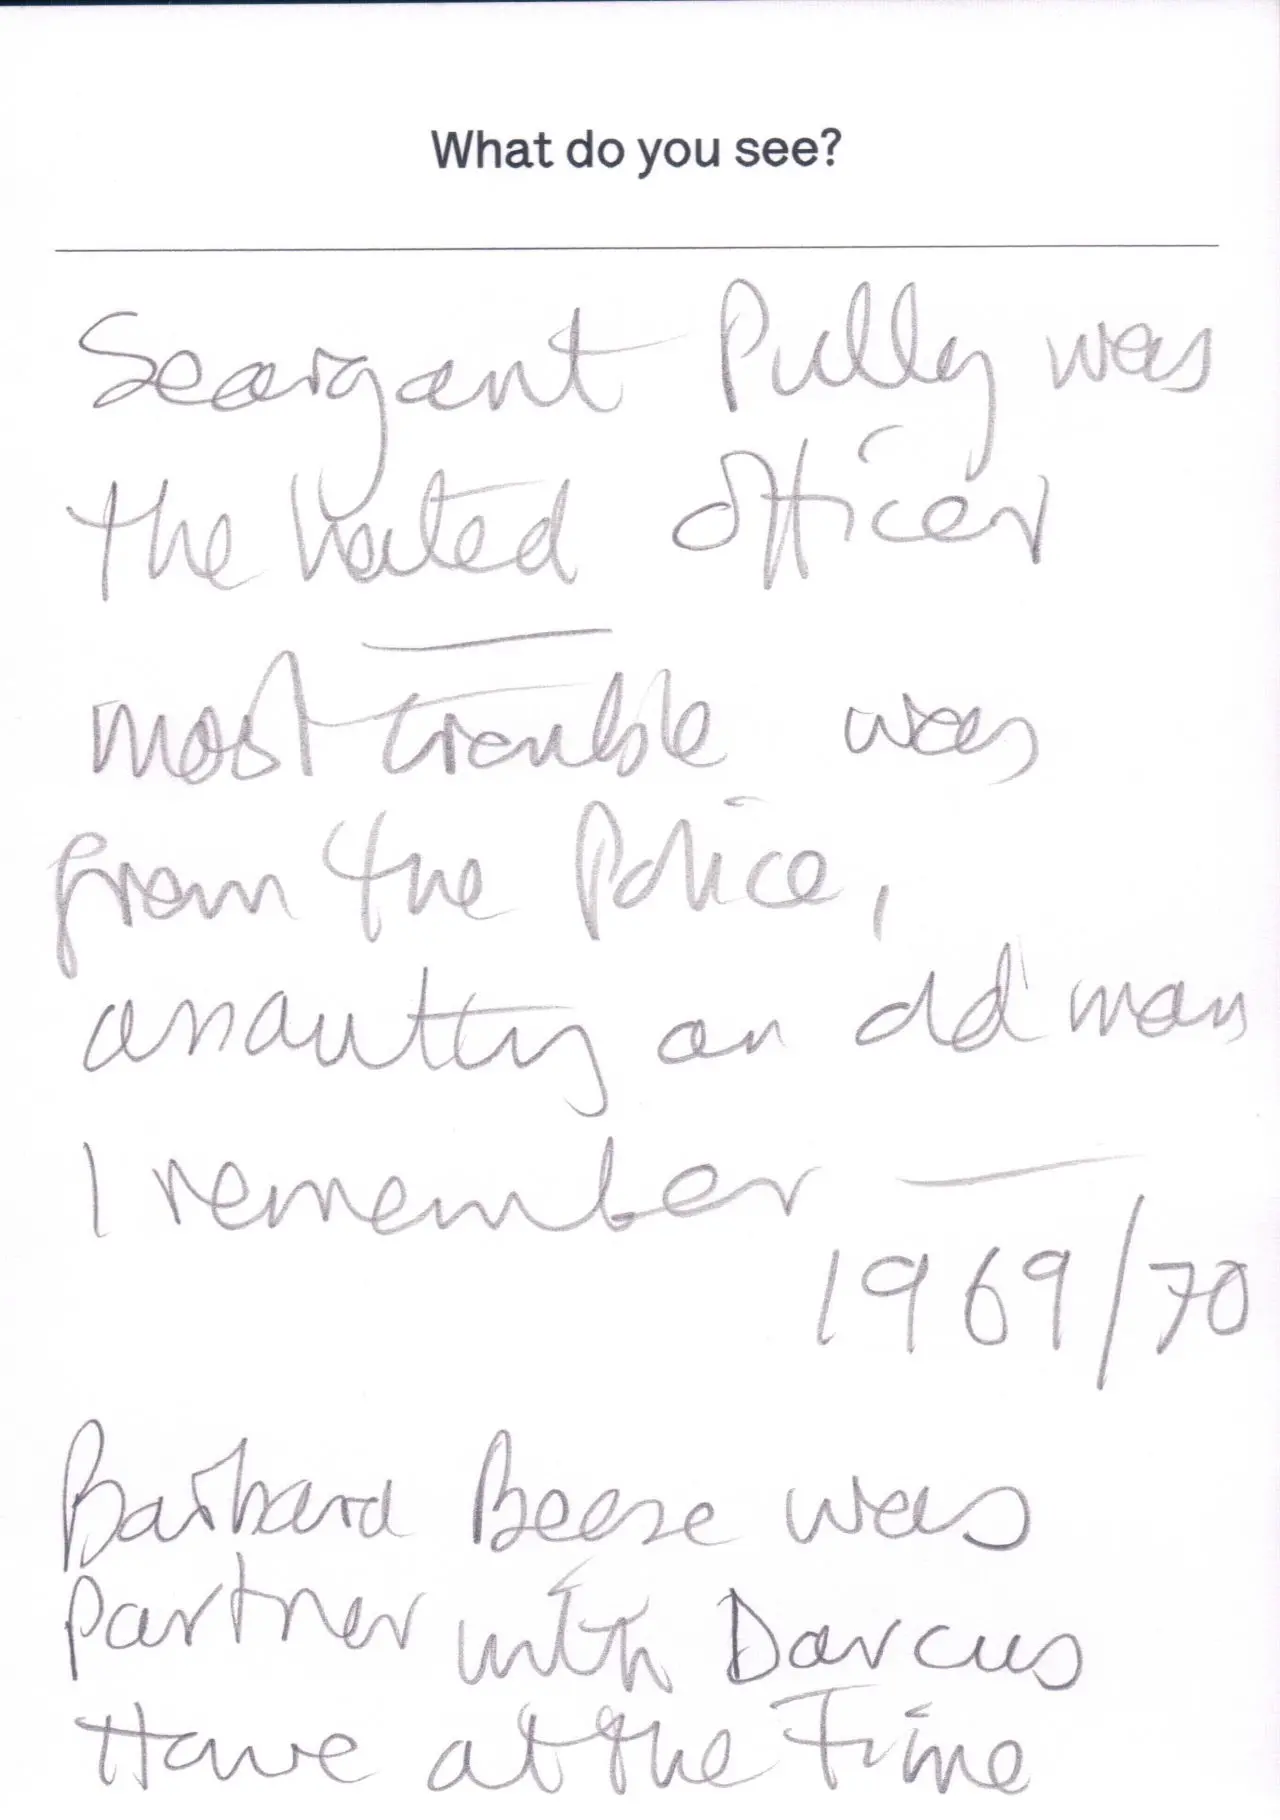 What do you see?
Seargant Pully was
the hated officer
—
most trouble was
from the Police,
assaulting an old man
I remember —
1969/70
Barbara Beese was
partner with Darcus
Howe at the Time